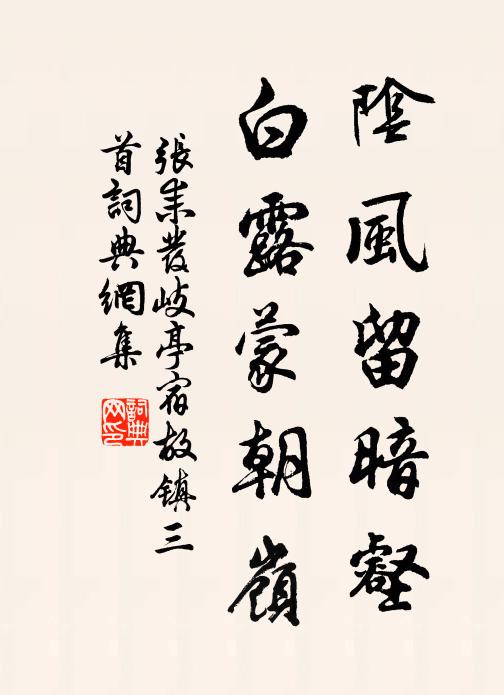 陰風留暗壑
白露蒙朝嶺
張耒發岐亭宿故鎮三
首詞典網集
詞典網印